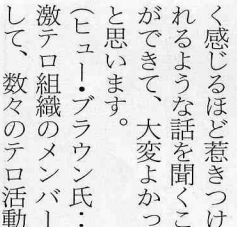 く感じるほど惹きつけ
れるような話を聞くこ
ができて、大変よかっ
と思います。
（ヒュー・ブラウン氏：
激テロ組織のメンバー
して、数々のテロ活動